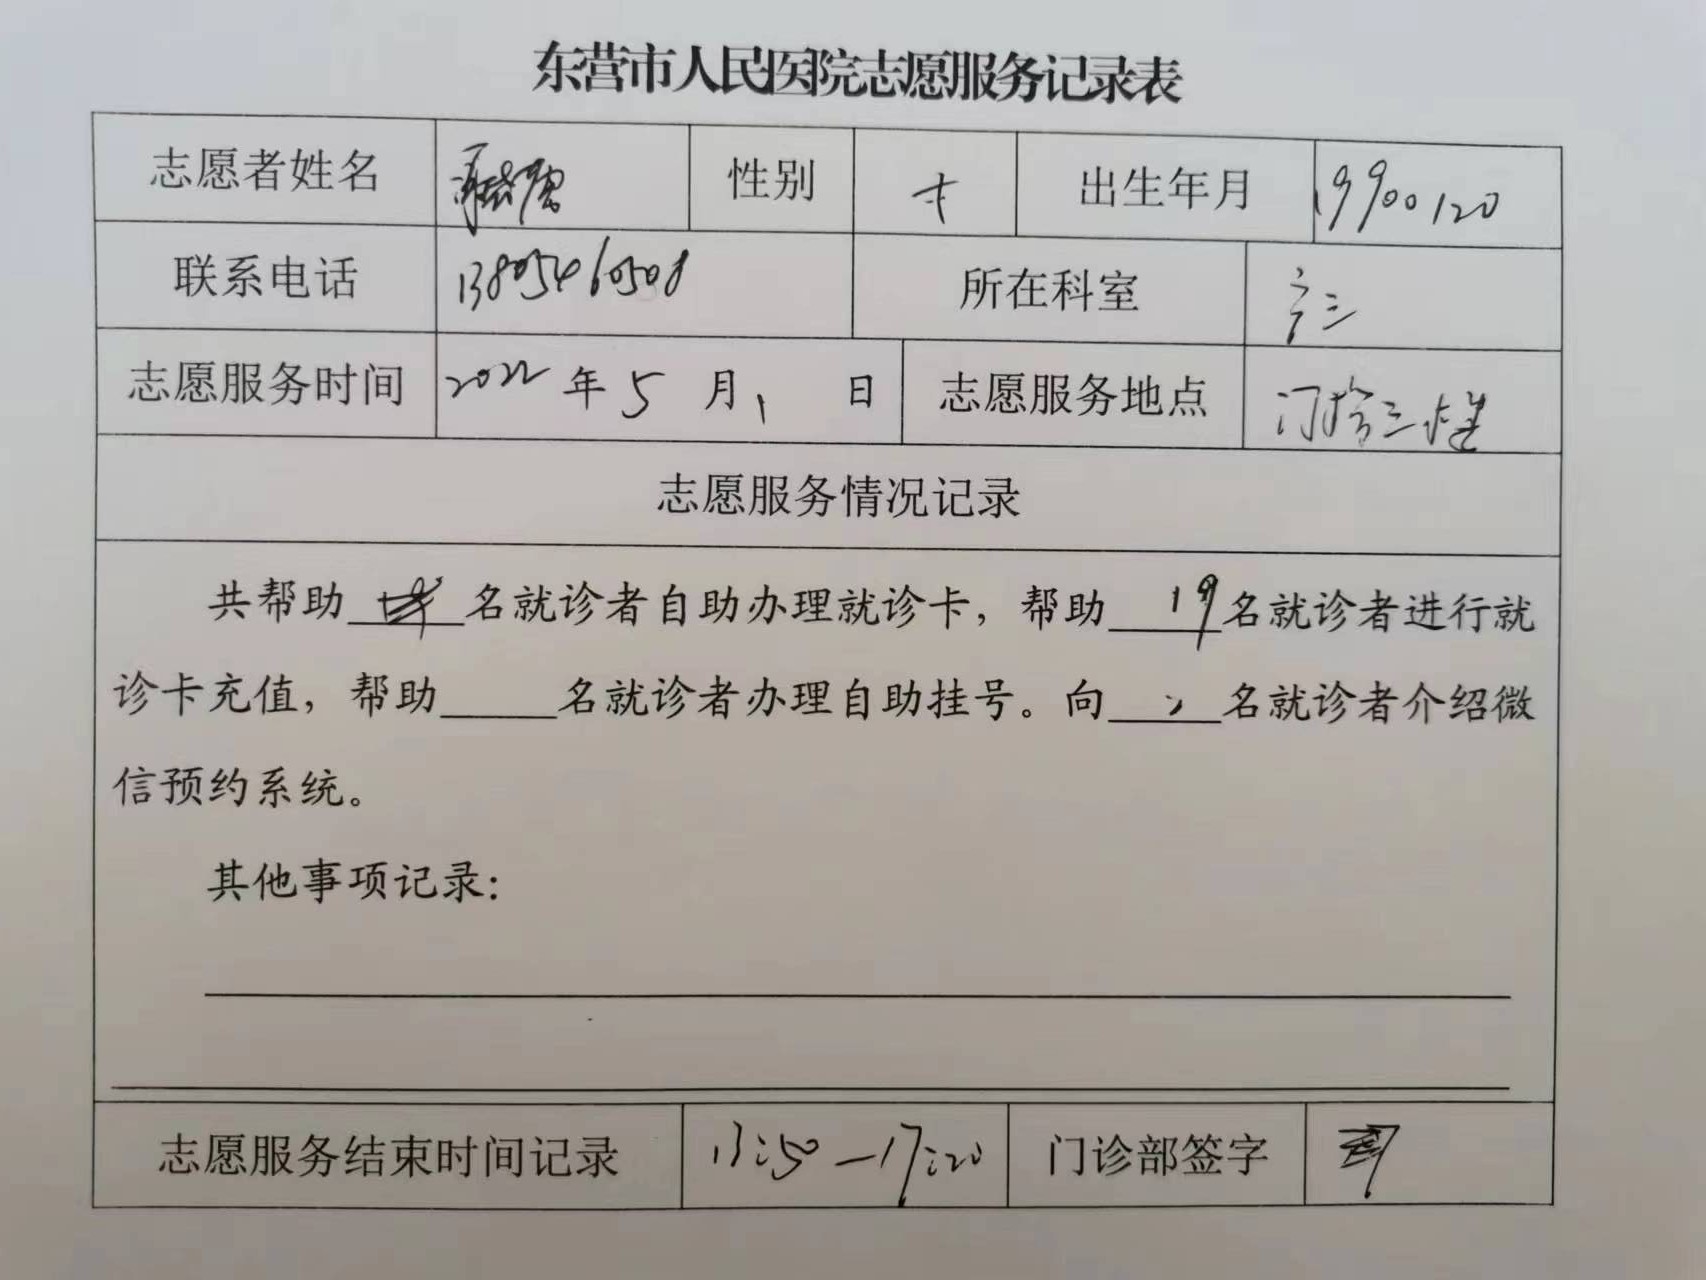 东营市人民医院志愿服务记录表
志愿者姓名 性别 女 出生年月 19900120
联系电话 13805460508 所在科室 产三
志愿服务时间 2022年5月1日 志愿服务地点 门诊三楼
志愿服务情况记录
共帮助 名就诊者自助办理就诊卡，帮助19名就诊者进行就
诊卡充值，帮助 名就诊者办理自助挂号。向 名就诊者介绍微
信预约系统。
其他事项记录：
志愿服务结束时间记录 13:50—17:20 门诊部签字